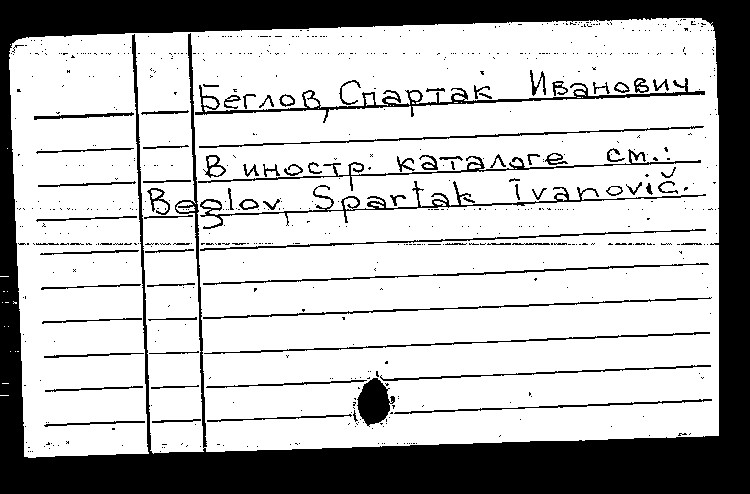 Беглов, Спартак Иванович
В иностр. каталоге см.:
Beglov, Spartak Ivanovič.